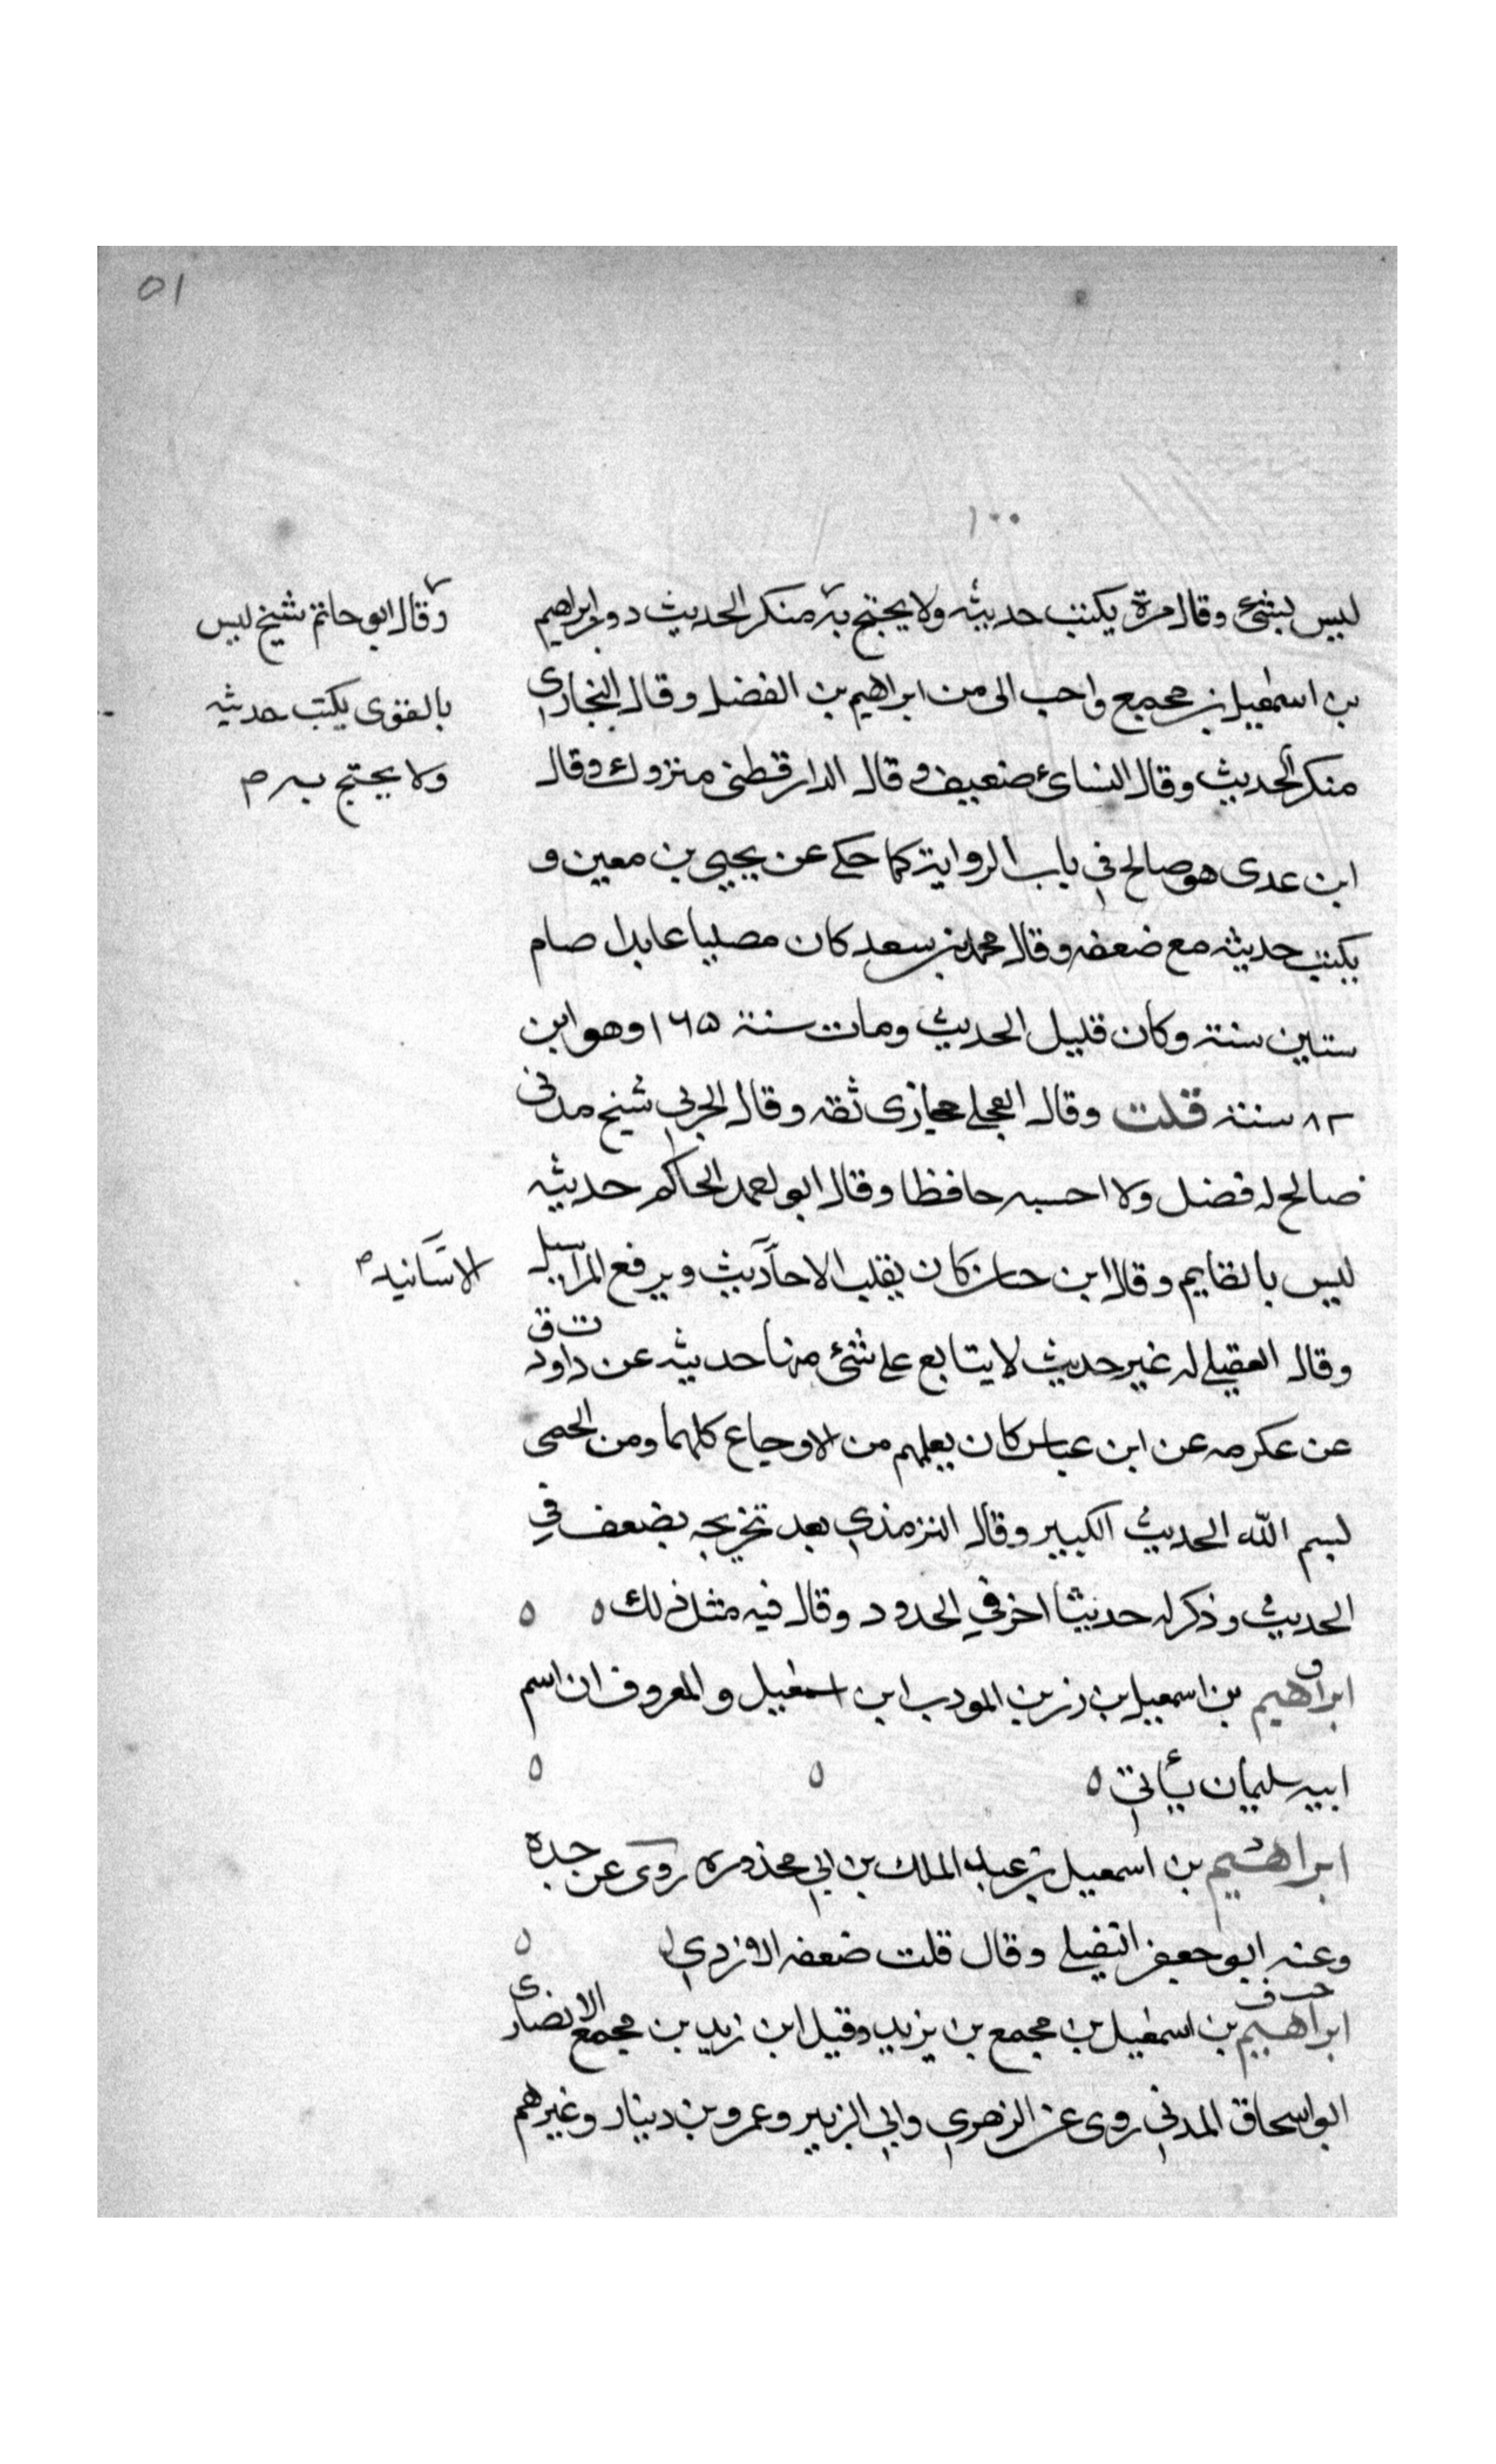 ٥١
١٠٠
ليس بشئ وقال مرة يكتب حديثه ولا يحتج به منكر الحديث دون ابراهيم
وقال ابو حاتم شيخ ليس
بن اسمعيل بن مجمع واحب الى من ابراهيم بن الفضل وقال البخارى
بالقوى يكتب حديثه
منكر الحديث وقال النسائ ضعيف وقال الدارقطنى متروك وقال
ولا يحتج به م
ابن عدى هو صالح في باب الرواية كما حكي عن يحيى بن معين و
يكتب حديثه مع ضعفه وقال محمد بن سعد كان مصليا عابدا صام
ستين سنة وكان قليل الحديث ومات سنة ١٦٥ وهو ابن
٨٢ سنة قلت وقال العجلي حجازى ثقة وقال الحربي شيخ مدنى
صالح له فضل ولا احسبه حافظا وقال ابو احمد الحاكم حديثه
ليس بالقايم وقال ابن حبان كان يقلب الاحاديث ويرفع المراسيل
الاسانيد م
ت ق
وقال العقيلي له غير حديث لا يتابع على شئ منها حديثه عن داود
عن عكرمه عن ابن عباس كان يعلمهم من الاوجاع كلهما ومن الحمى
بسم الله الحديث الكبير وقال الترمذي بعد تخريجه يضعف في
الحديث وذكر له حديثا اخر في الحدود وقال فيه مثل ذلك ٥ ٥
ق
ابراهيم بن اسمعيل بن رزين المودب ابن اسمعيل والمعروف ان اسم
ابيه سليمان يأتي ٥ ٥ ٥
ابراهيم بن اسمعيل بن عبد الملك بن ابي محذوره روى عن جده
وعنه ابو جعفر النفيلي وقال قلت ضعفه الازدي ٥
خت ق
ابراهيم بن اسمعيل بن مجمع بن يزيد وقيل ابن زيد بن مجمع الانصارى
ابو اسحاق المدني روى عن الزهري وابي الزبير وعمرو بن دينار وغيرهم